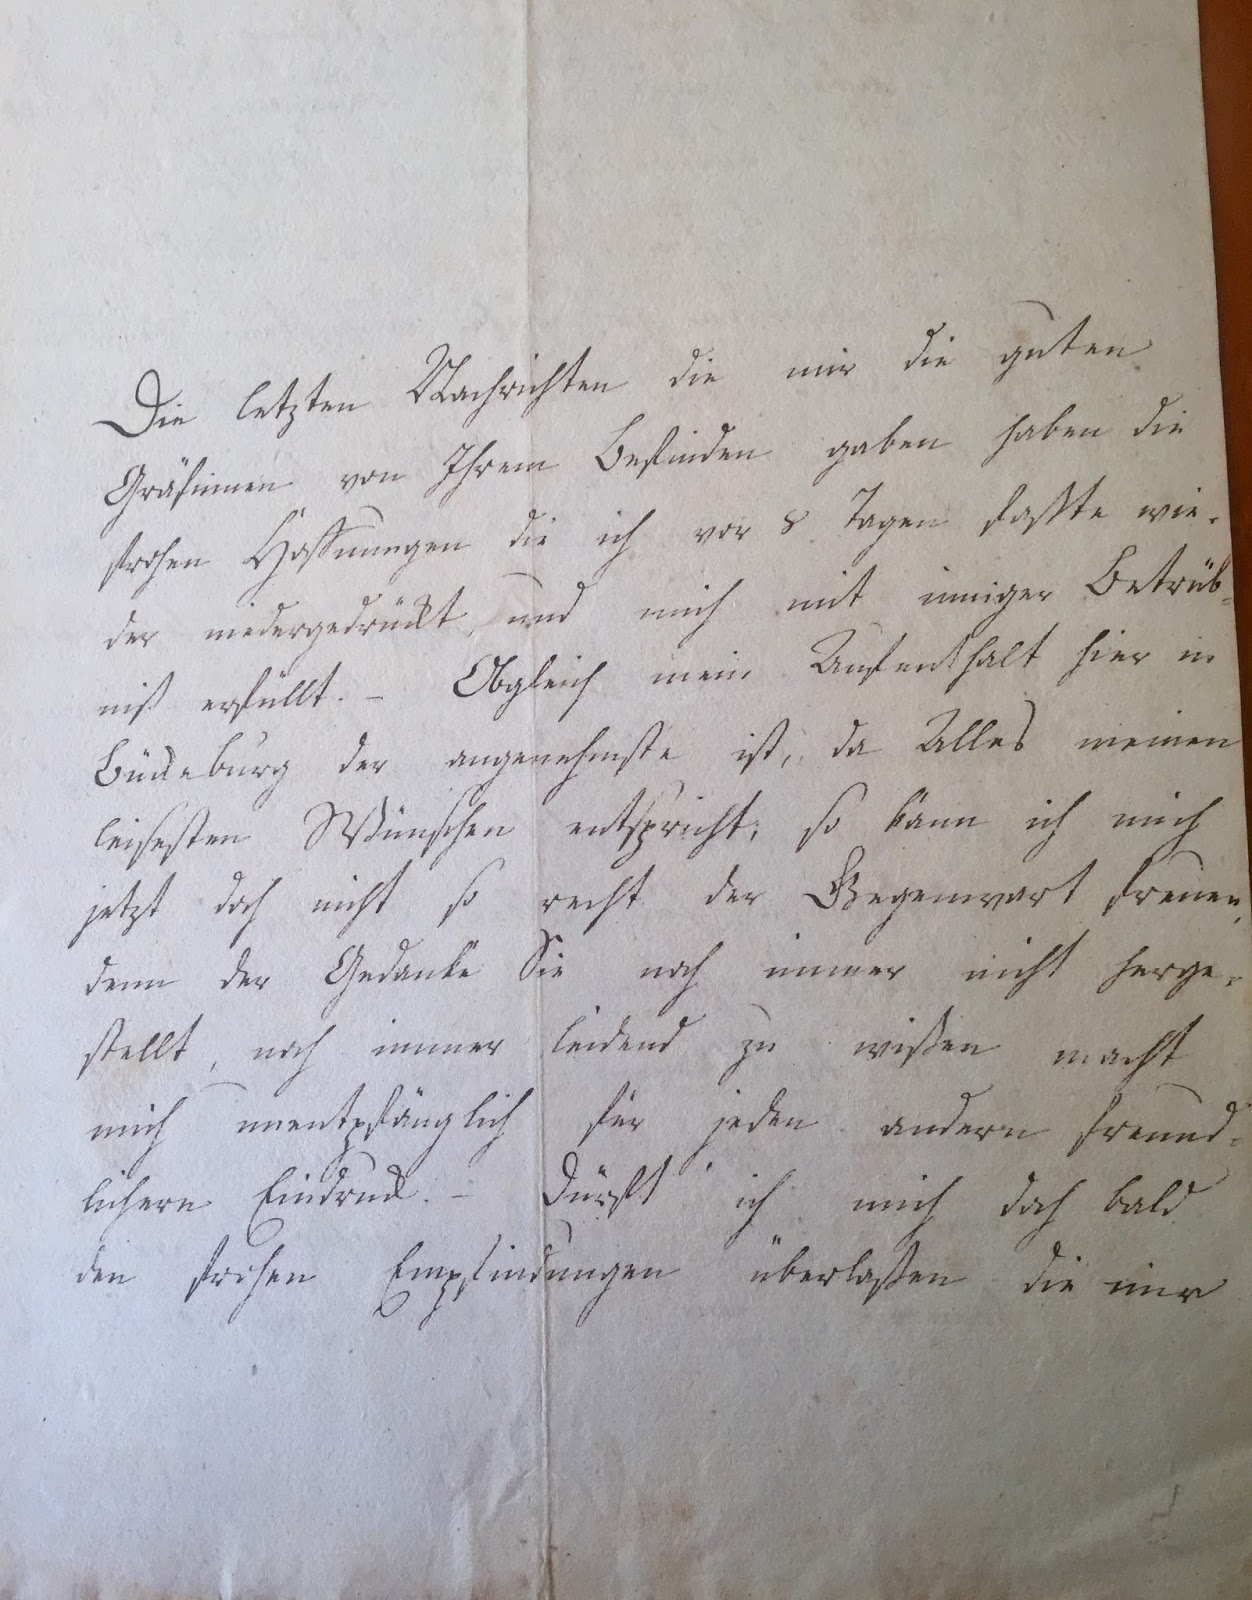 Die letzten Nachrichten die mir die guten
Gräfinnen von Ihrem Befinden gaben haben die
frohen Hoffnungen die ich vor 8 Tagen faßte wie-
der niedergedrückt, und mich mit inniger Betrüb-
niß erfüllt. – Obgleich mein Aufenthalt hier in
Bückeburg der angenehmste ist, da Alles meinen
leisesten Wünschen entspricht, so kann ich mich
jetzt doch nicht so recht der Gegenwart freuen,
denn der Gedanke Sie noch immer nicht herge-
stellt, noch immer leidend zu wißen macht
mich unentpfänglich für jeden andern freund-
lichern Eindruck. – Dürft' ich mich doch bald
den frohen Empfindungen überlaßen die mir